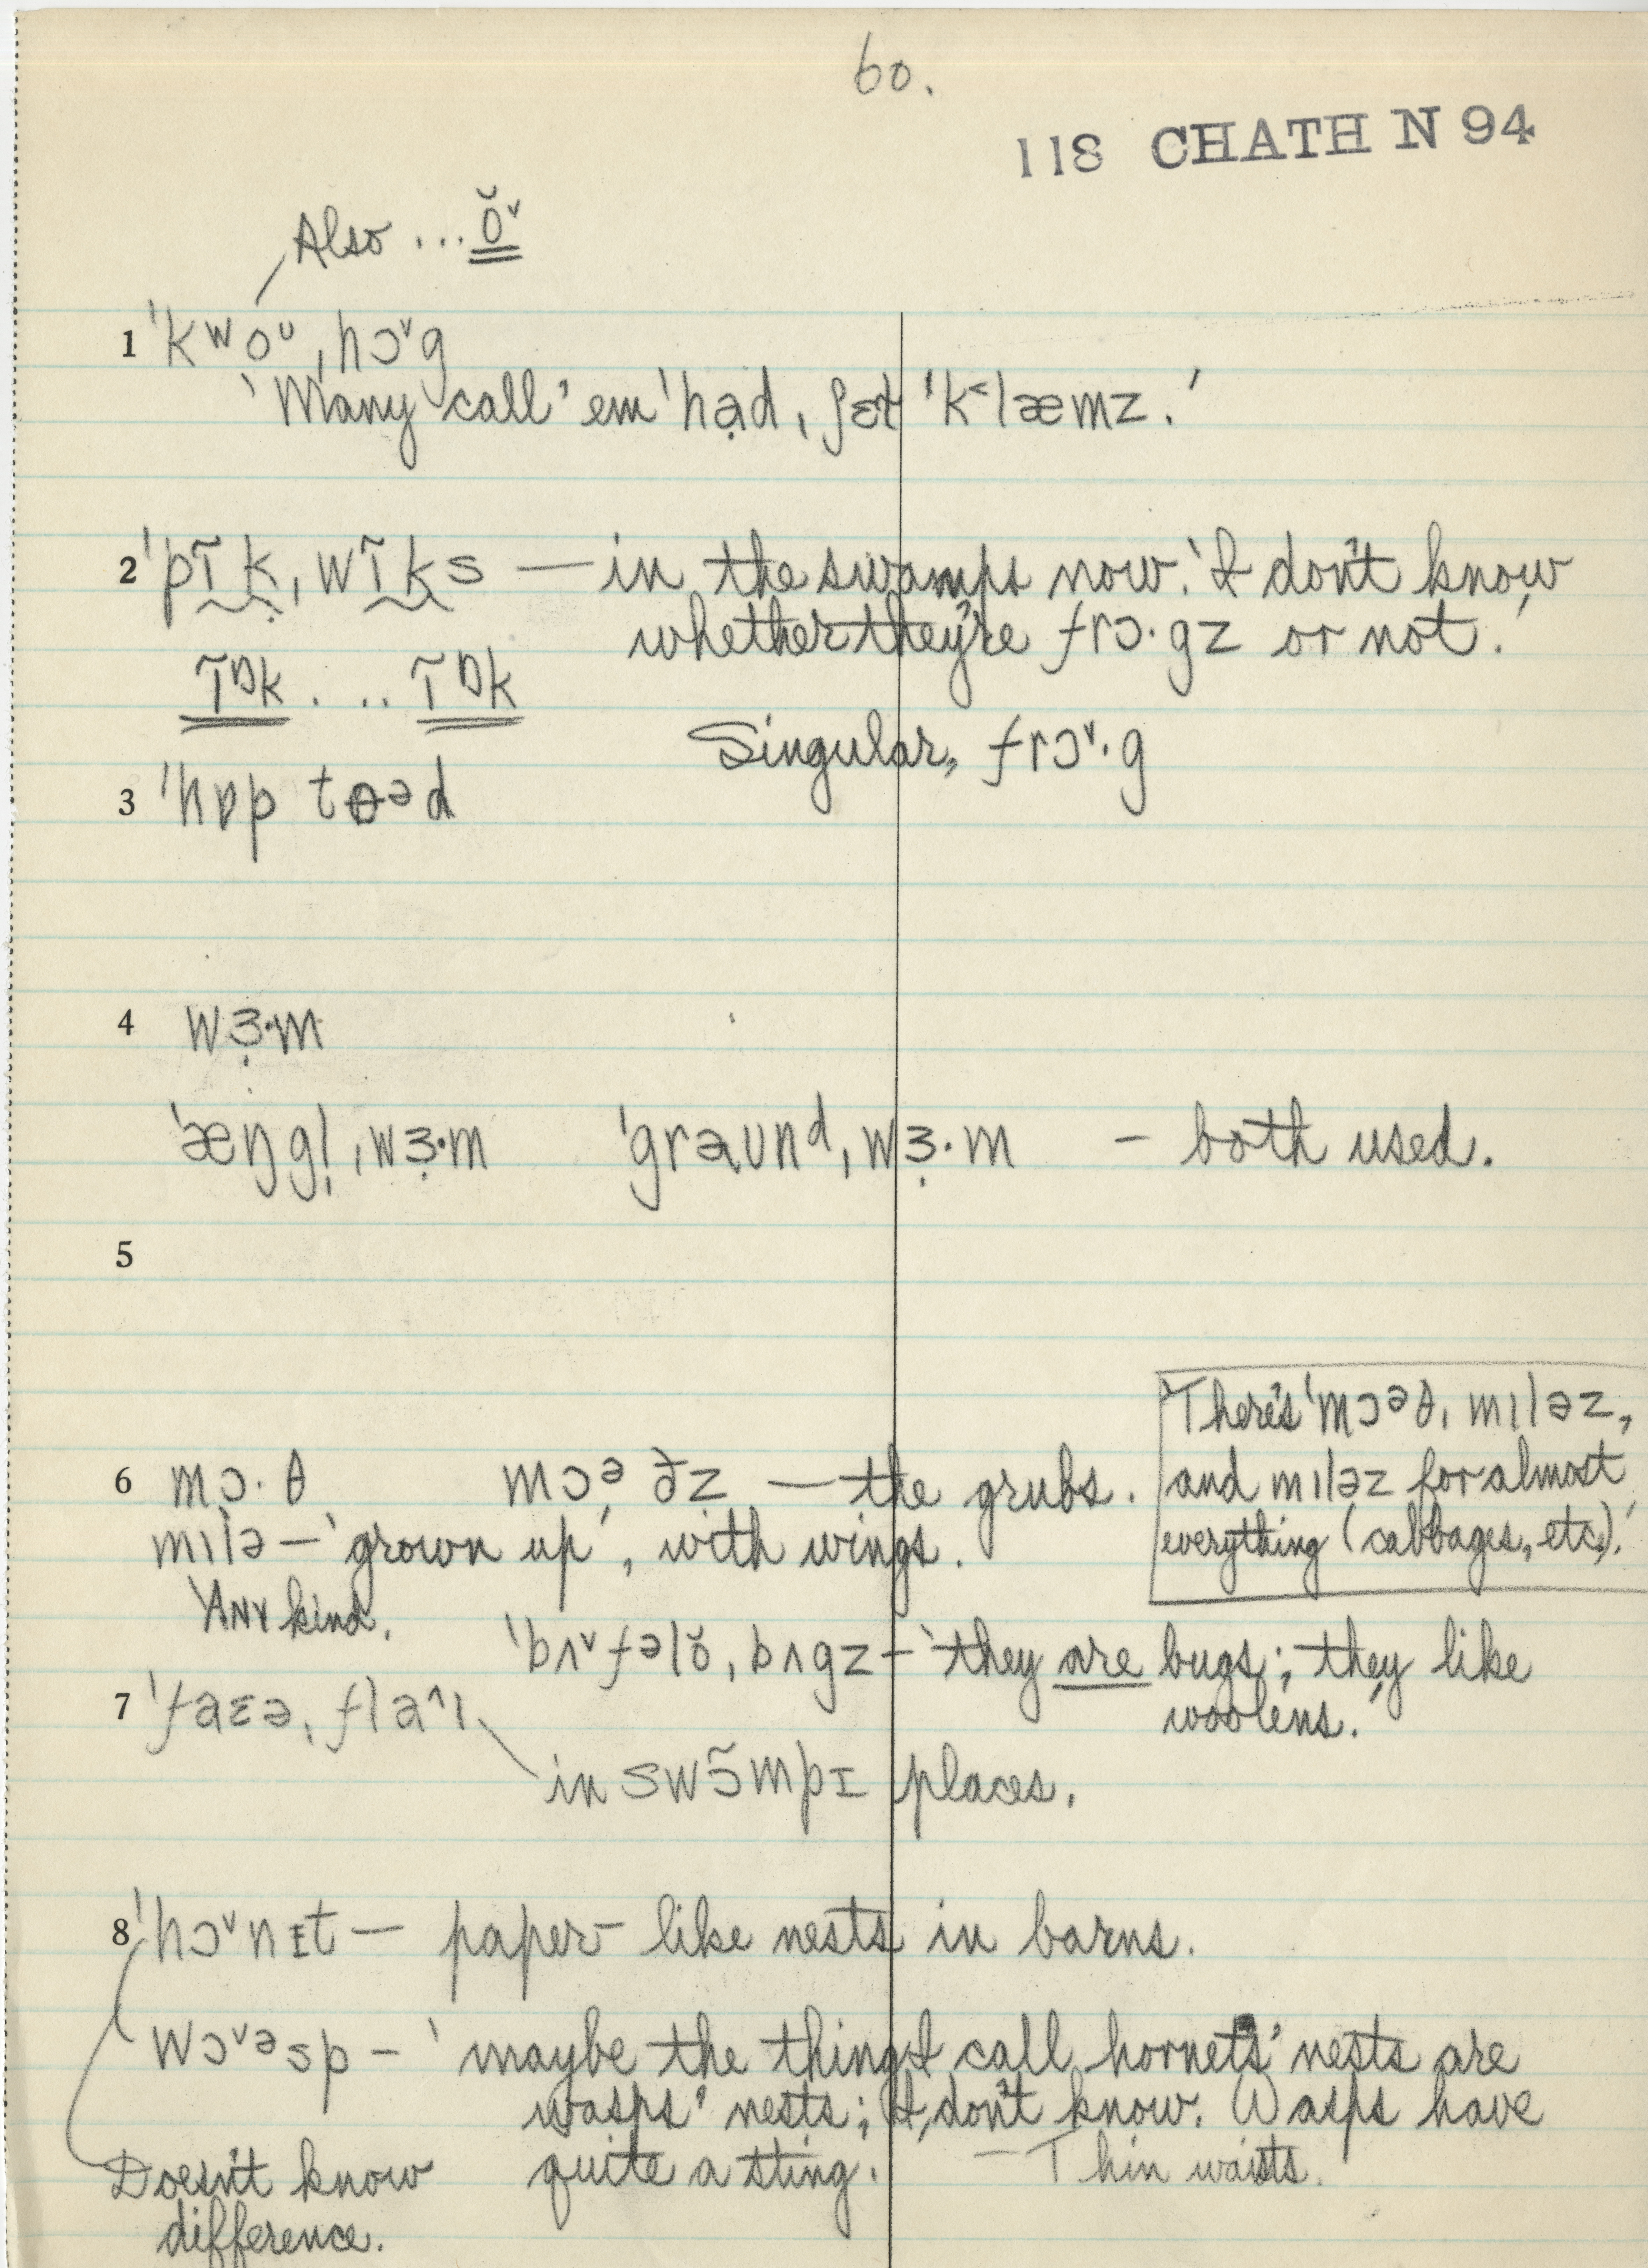 60.
118 CHATH N 94
Also ... ŏ˅
1 ˈkʷoᶷˌhɔ˅g
‘Many call ’em ˈhạdˌʃɛł ˈk˂læmz.’
2 ˈpĩk̰ˌwĩks — in the swamps now. ‘I don't know
whether they're frɔ·gz or not.’
ĩᵑk . .. ĩᵑk
Singular, frɔ˅·g
3 ˈhɒp tɵᵊd
4 wɜ̣·m
ˈæŋgl̩ˌwɜ̣·m ˈgraʊnᵈˌwɜ̣·m – both used.
5
There's ˈmɔᵊθˌmɪləz,
6 mɔ·θ mɔᵊðz — the grubs. and mɪləz for almost
mɪlə – ‘grown up’, with wings. everything (cabbages, etc.).’
‘ANY kind.
ˈbʌ˅fəlŏˌbʌgz – ‘they are bugs; they like
7 ˈfaɛəˌflaˆɪ woolens.’
in swɔ̃mpɪ places.
8 ˈhɔ˅nɪt — paper-like nests in barns.
wɔ˅ᵊsp – ‘maybe the things I call hornets’ nests are
wasps’ nests; I don't know. Wasps have
Doesn't know quite a sting. – Thin waists.
difference.